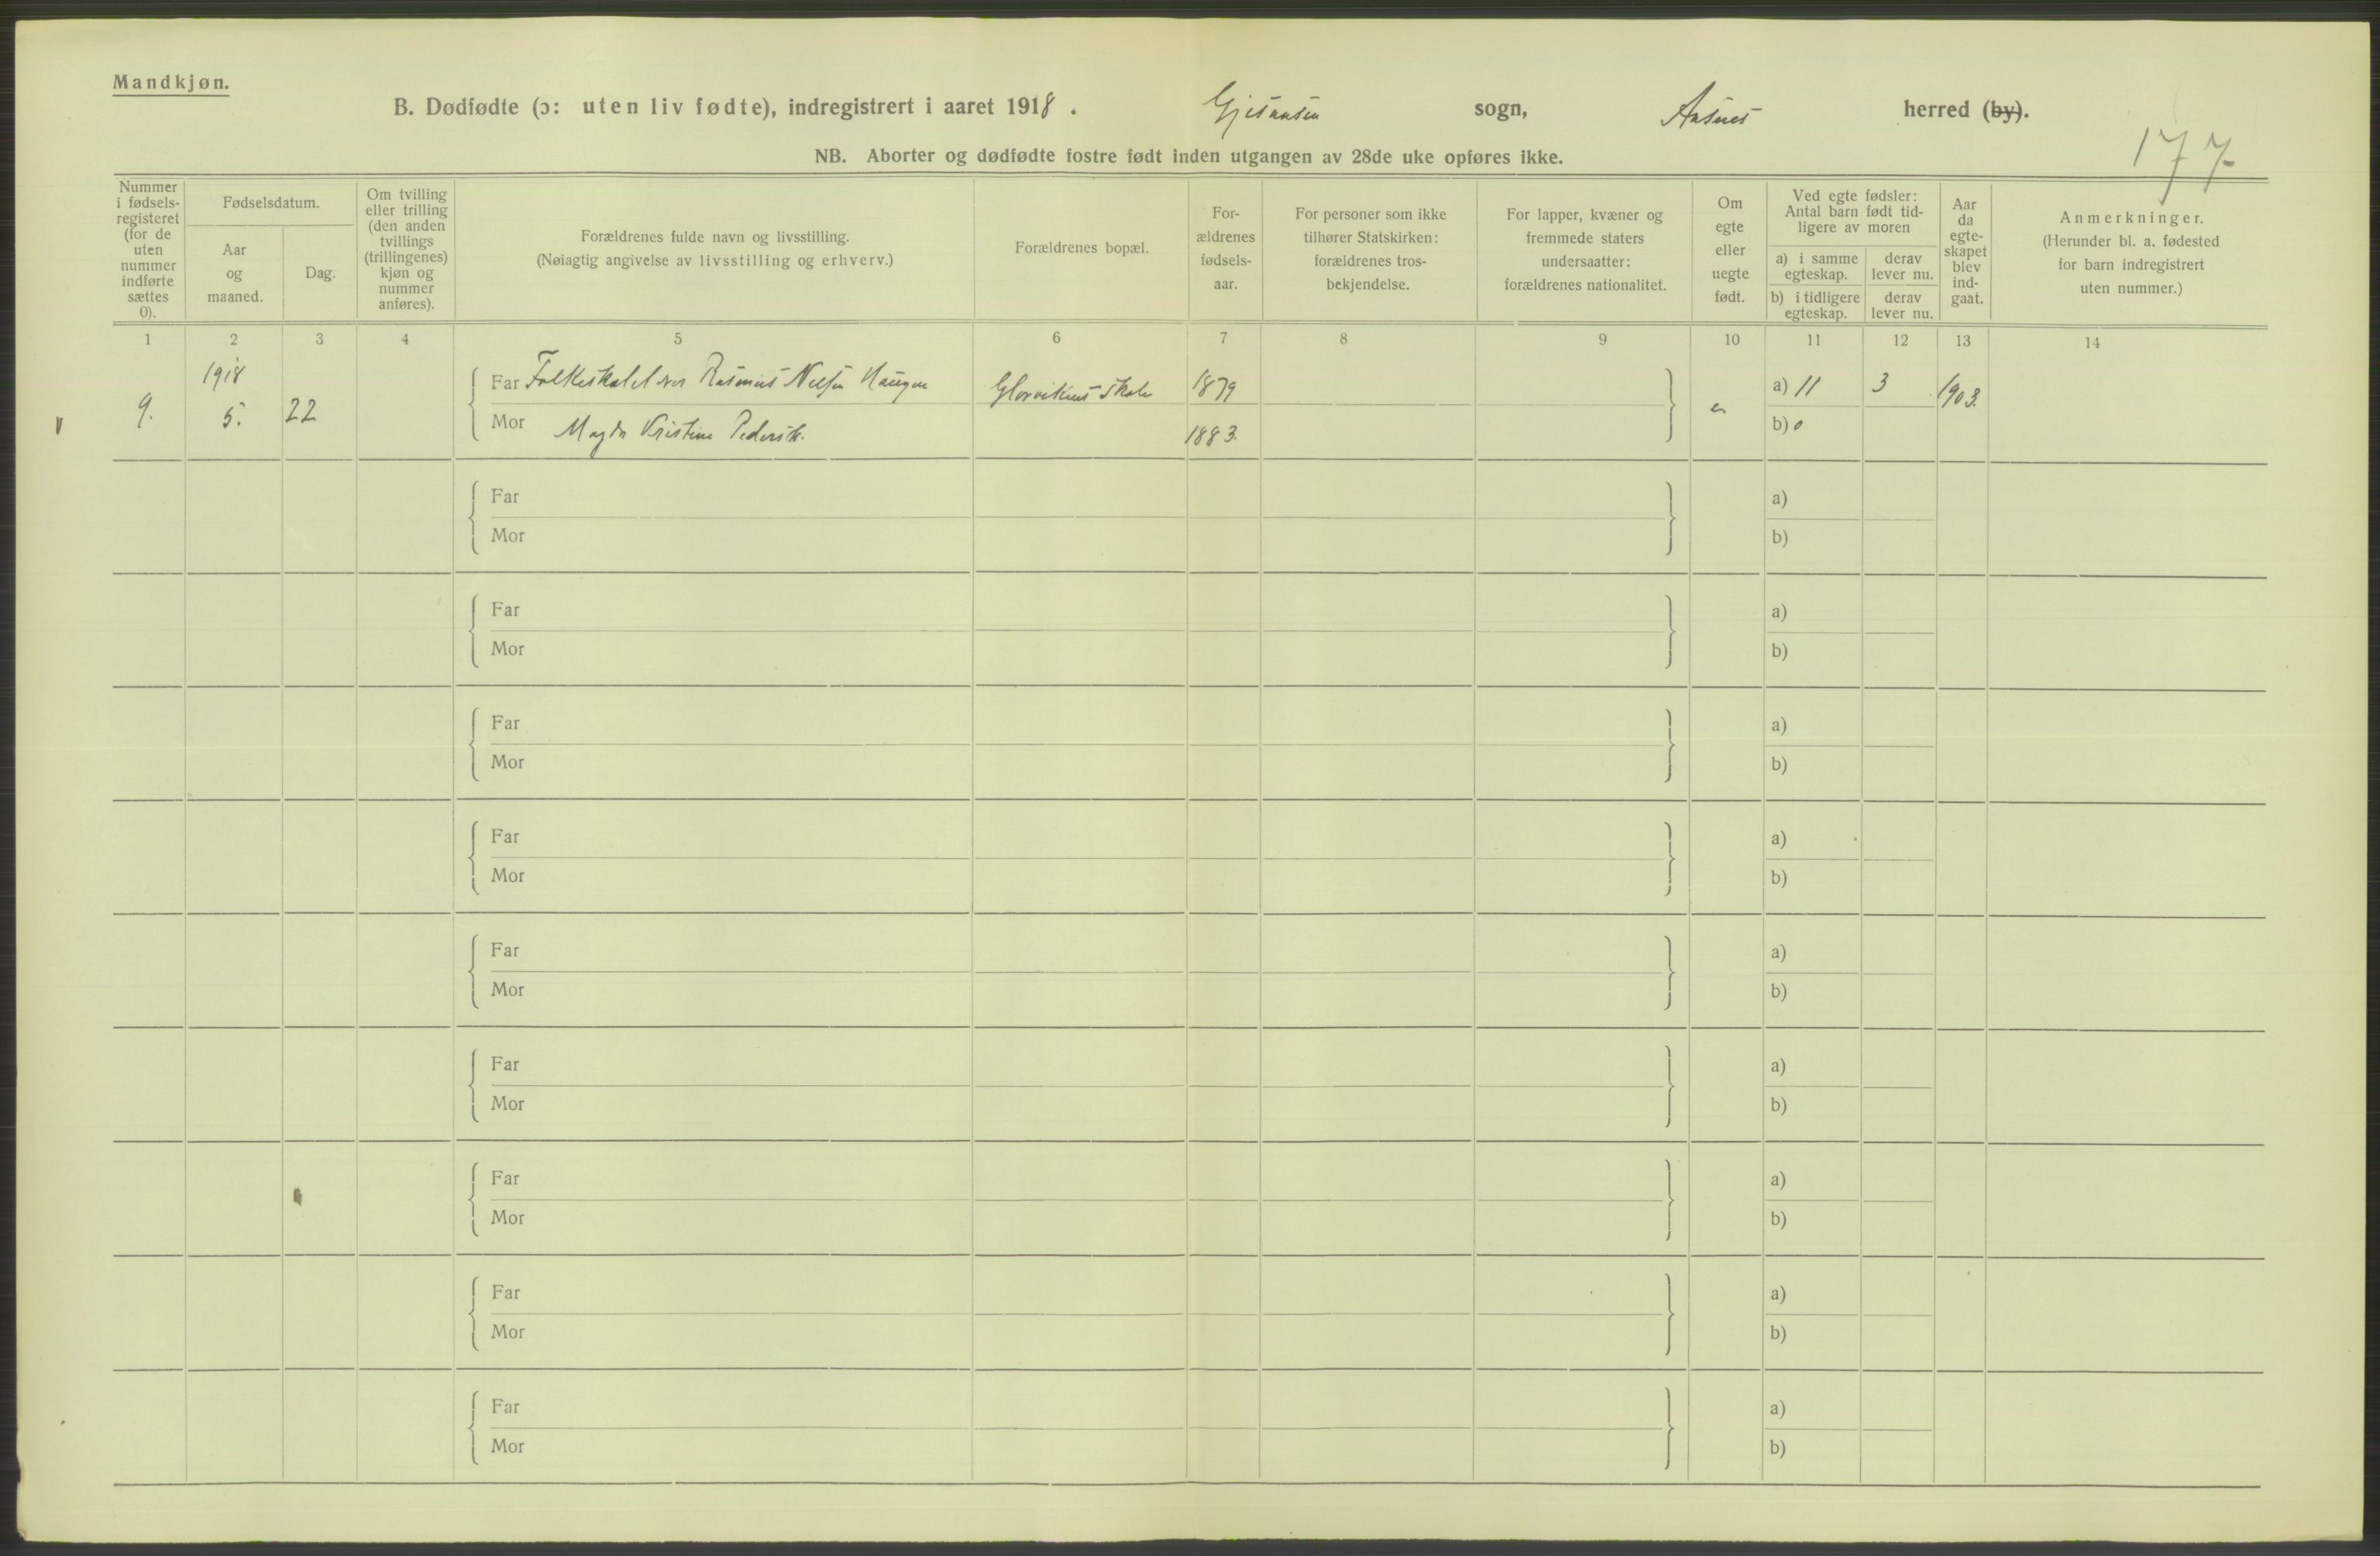 Mandkjøn.
B. Dødfødte (ɔ: uten liv fødte), indregistrert i aaret 1918. Gjesaasen sogn, Aasnes herred (by).
177
NB. Aborter og dødfødte fostre født inden utgangen av 28de uke opføres ikke.
Nummer i fødsels-registeret (for de uten nummer indførte sættes 0).
Fødselsdatum.
Aar og maaned.
Dag.
Om tvilling eller trilling (den anden tvillings (trillingenes) kjøn og nummer anføres).
Forældrenes fulde navn og livsstilling.
(Nøiagtig angivelse av livsstilling og erhverv.)
Forældrenes bopæl.
For-ældrenes fødsels-aar.
For personer som ikke tilhører Statskirken: forældrenes tros-bekjendelse.
For lapper, kvæner og fremmede staters undersaatter: forældrenes nationalitet.
Om egte eller uegte født.
Ved egte fødsler: Antal barn født tid-ligere av moren
a) i samme egteskap.
derav lever nu.
b) i tidligere egteskap.
derav lever nu.
Aar da egte-skapet blev ind-gaat.
Anmerkninger.
(Herunder bl. a. fødested for barn indregistrert uten nummer.)
1 2 3 4 5 6 7 8 9 10 11 12 13 14
1918
Far Rasmus Nilsen Haugen skole 1879 a) 11 3 1903.
9. 5. 22 e
Mor Magda Kristine 1883. b) 0
Far a)
Mor b)
Far a)
Mor b)
Far a)
Mor b)
Far a)
Mor b)
Far a)
Mor b)
Far a)
Mor b)
Far a)
Mor b)
Far a)
Mor b)
Far a)
Mor b)